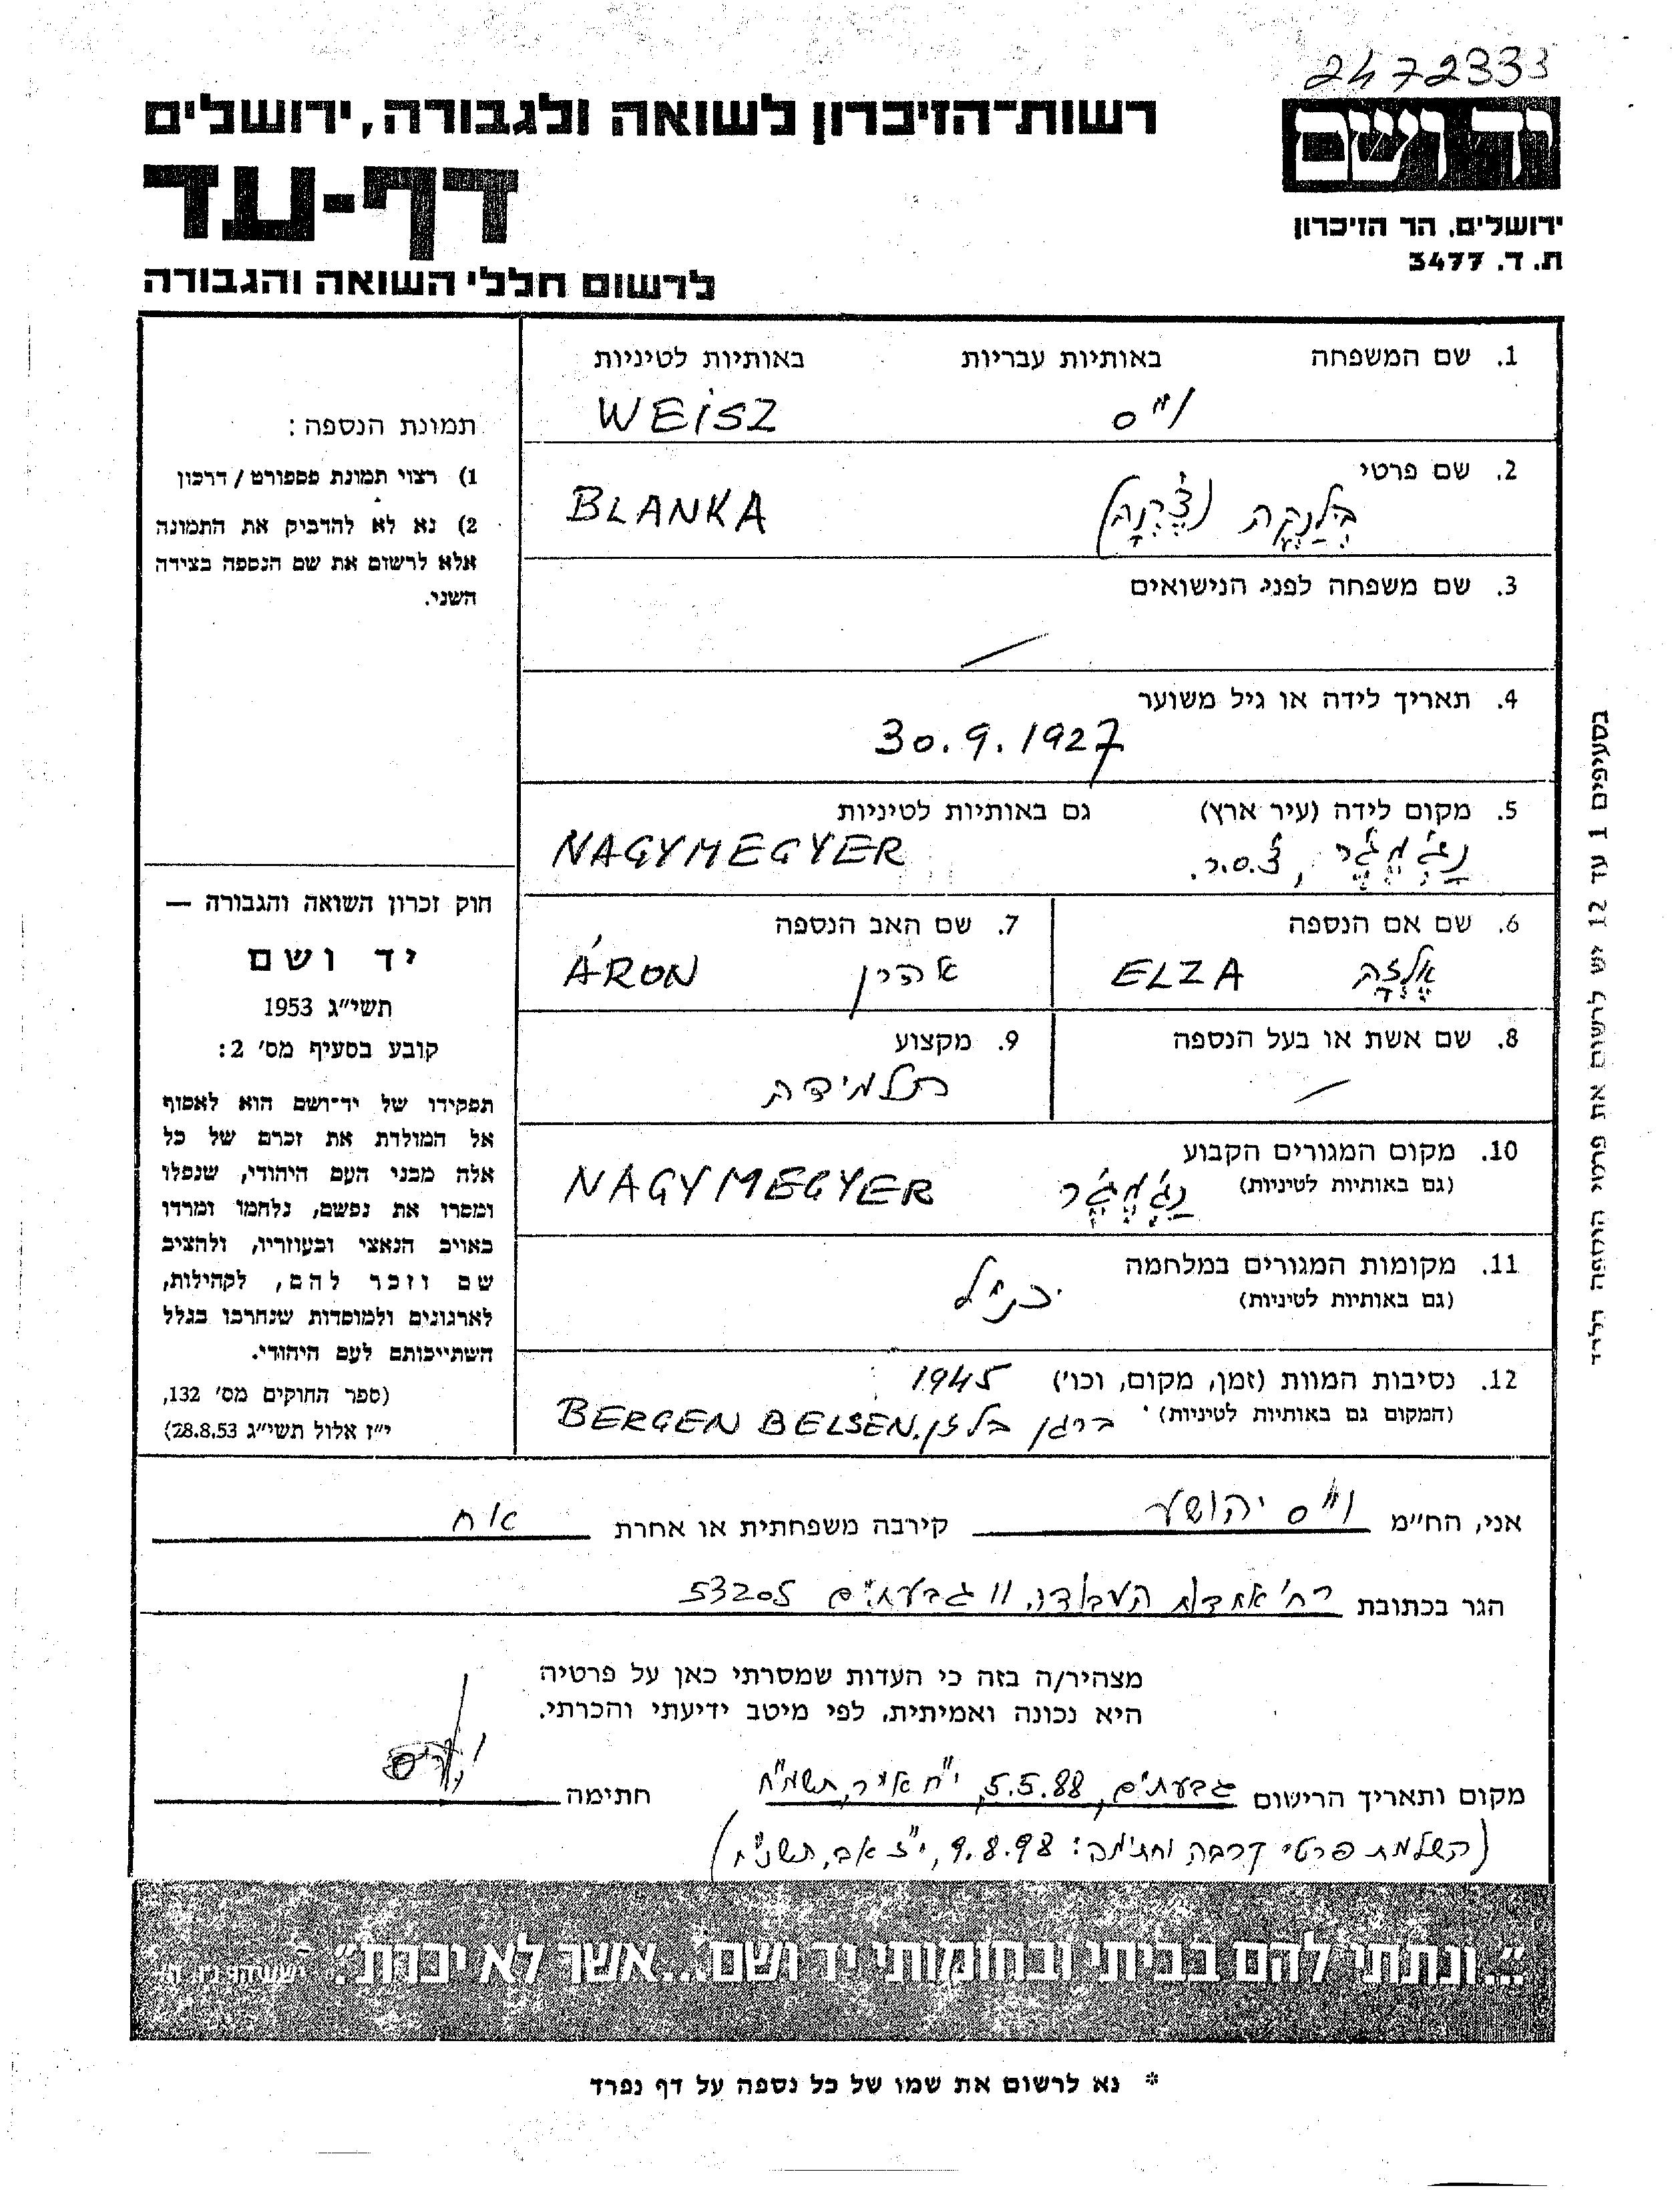 2472333
יד ושם
ירושלים, הר הזיכרון
ת. ד. 3477
רשות־הזיכרון לשואה ולגבורה, ירושלים
דף-עד
לרשום חללי השואה והגבורה
1. שם המשפחה באותיות עבריות באותיות לטיניות
וייס WEISZ
2. שם פרטי
בלנקה BLANKA
3. שם משפחה לפני הנישואים
4. תאריך לידה או גיל משוער
30.9.1927
5. מקום לידה (עיר ארץ) גם באותיות לטיניות
נג'מג'ר, צ'.ס.ר. NAGYMEGYER
6. שם אם הנספה 7. שם האב הנספה
אלזה ELZA אהרן ÁRON
8. שם אשת או בעל הנספה 9. מקצוע
תלמידה
10. מקום המגורים הקבוע
(גם באותיות לטיניות) נג'מג'ר NAGYMEGYER
11. מקומות המגורים במלחמה
(גם באותיות לטיניות) כנ"ל
12. נסיבות המוות (זמן, מקום, וכו') 1945
(המקום גם באותיות לטיניות) ברגן בלזן. BERGEN BELSEN
תמונת הנספה:
1) רצוי תמונת פספורט / דרכון
2) נא לא להדביק את התמונה
אלא לרשום את שם הנספה בצידה
השני.
חוק זכרון השואה והגבורה —
יד ושם
תשי"ג 1953
קובע בסעיף מס' 2:
תפקידו של יד־ושם הוא לאסוף
אל המולדת את זכרם של כל
אלה מבני העם היהודי, שנפלו
ומסרו את נפשם, נלחמו ומרדו
באויב הנאצי ובעוזריו, ולהציב
שם וזכר להם, לקהילות,
לארגונים ולמוסדות שנחרבו בגלל
השתייכותם לעם היהודי.
(ספר החוקים מס' 132,
י"ז אלול תשי"ג 28.8.53)
בסעיפים 1 עד 12 יש לרשום את פרטי הנספה בלבד
אני, הח"מ וייס יהושע קירבה משפחתית או אחרת אח
הגר בכתובת רח' אחדות העבודה 11 גבעתיים 53205
מצהיר/ה בזה כי העדות שמסרתי כאן על פרטיה
היא נכונה ואמיתית, לפי מיטב ידיעתי והכרתי.
מקום ותאריך הרישום גבעתיים, 5.5.88, י"ח אייר, תשמ"ח חתימה
(השלמת פרטי קרבה וחתימה: 9.8.98, י"ז אב, תשנ"ח)
"...ונתתי להם בביתי ובחומותי יד ושם...אשר לא יכרת". ישעיהו נו, ה
* נא לרשום את שמו של כל נספה על דף נפרד